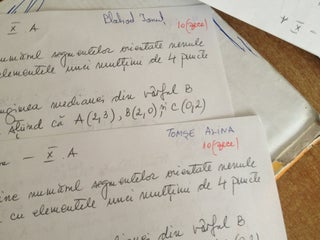 X A
Ionuț 10 (zece)
numărul segmentelor orientate nenule
elementele unei mulțimi de 4 puncte
medianei din vârful B
știind că A(2,3), B(2,0), și C(0,2)
TOMȘE ALINA
— X. A 10 (zece)
numărul segmentelor orientate nenule
cu elementele unei mulțimi de 4 puncte
medianei din vârful B
X A